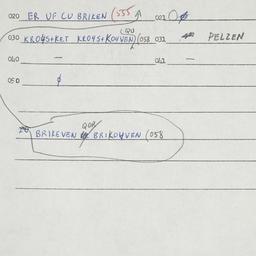 020 ER UF CU BRIKEN (555 001
QU
030 KROYS+KET KROYS+KOYVEN (058 031 PELZEN
040 — 041 —
050
QOP
BRIKEVEN BRIKOYVEN (058